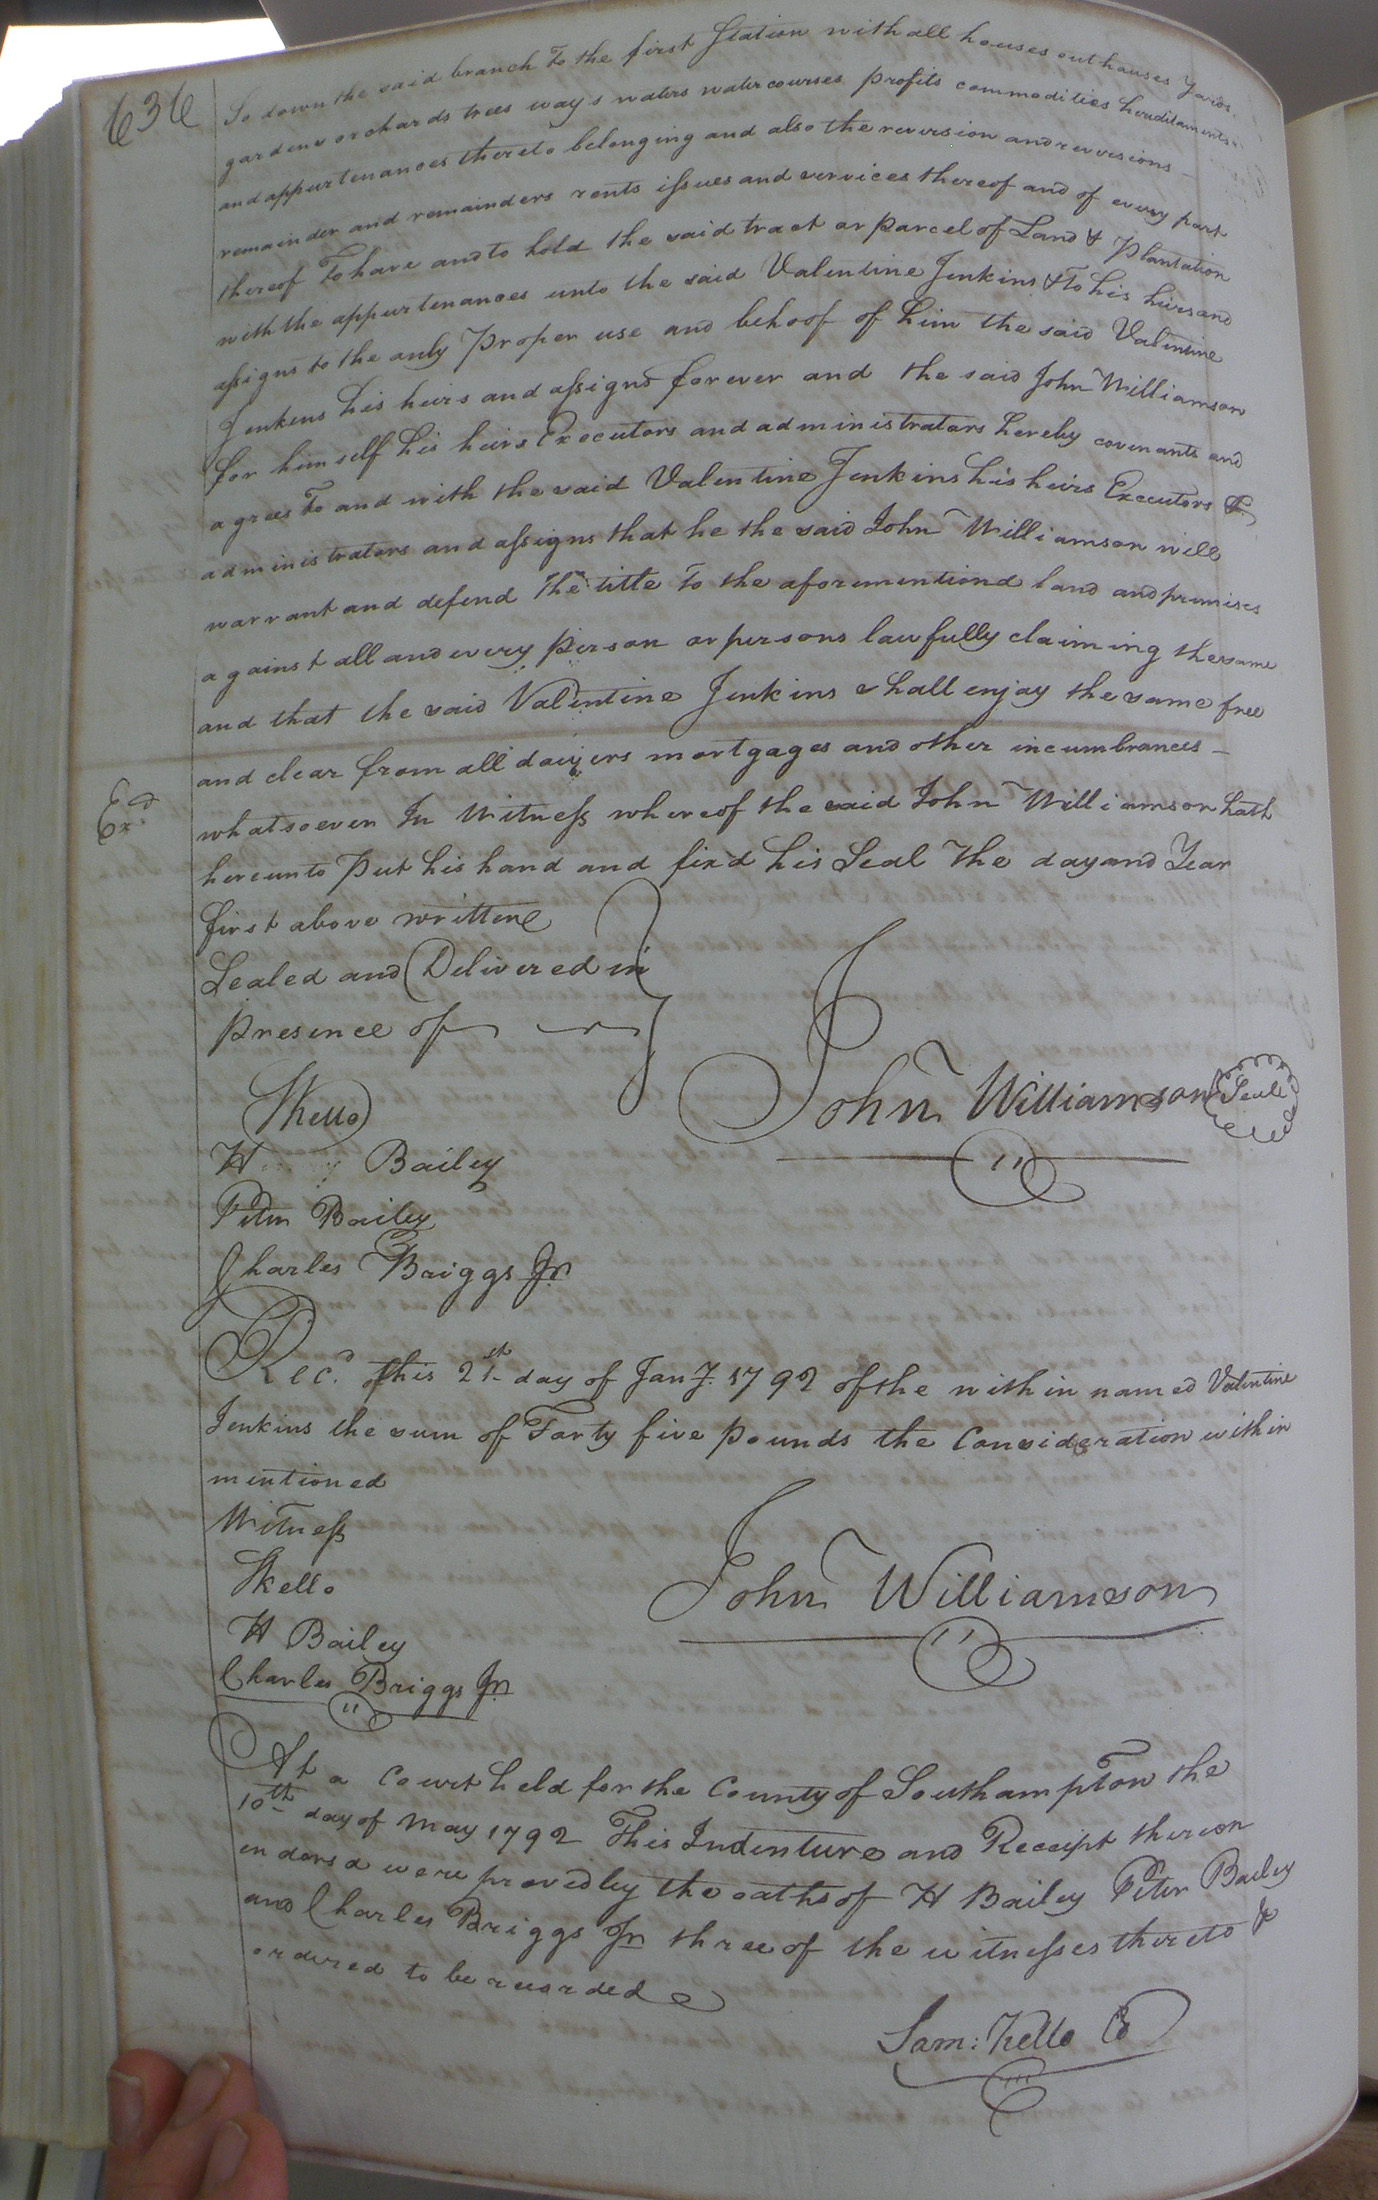 636
So down the said branch To the first Station with all houses outhouses Yards
gardens orchards trees ways waters watercourses profits commodities hereditaments
and appurtenances thereto belonging and also the reversion and reversions
remainder and remainders rents issues and services thereof and of every part
thereof To have and to hold the said tract or parcel of Land & Plantation
with the appurtenances unto the said Valentine Jenkins & To his heirs and
assigns to the only Proper use and behoof of him the said Valentine
Jenkins his heirs and assigns forever and the said John Williamson
for himself his heirs Executors and administrators hereby covenants and
agrees To and with the said Valentine Jenkins his heirs Executors &
administrators and assigns that he the said John Williamson will
warrant and defend the title To the aforementiond land and premises
against all and every person or persons lawfully claiming the same
and that the said Valentine Jenkins shall enjoy the same free
and clear from all dowers mortgages and other incumbrances
Exd
whatsoever In Witness whereof the said John Williamson hath
hereunto Put his hand and fixd his Seal The day and Year
first above written
Sealed and Delivered in
presence of
SKello
John Williamson Seal
H Bailey
Peter Bailey
Charles Briggs Jr
Recd. this 21st day of Jany. 1792 of the within named Valentine
Jenkins the sum of Forty five pounds the Consideration within
mentioned
Witness
SKello
John Williamson
H Bailey
Charles Briggs Jr
At a Court held for the County of Southampton the
10th day of May 1792 This Indenture and Receipt thereon
indorsd were proved by the oaths of H Bailey Peter Bailey
and Charles Briggs Jr three of the witnesses thereto &
ordered to be recorded
Sam: Kello